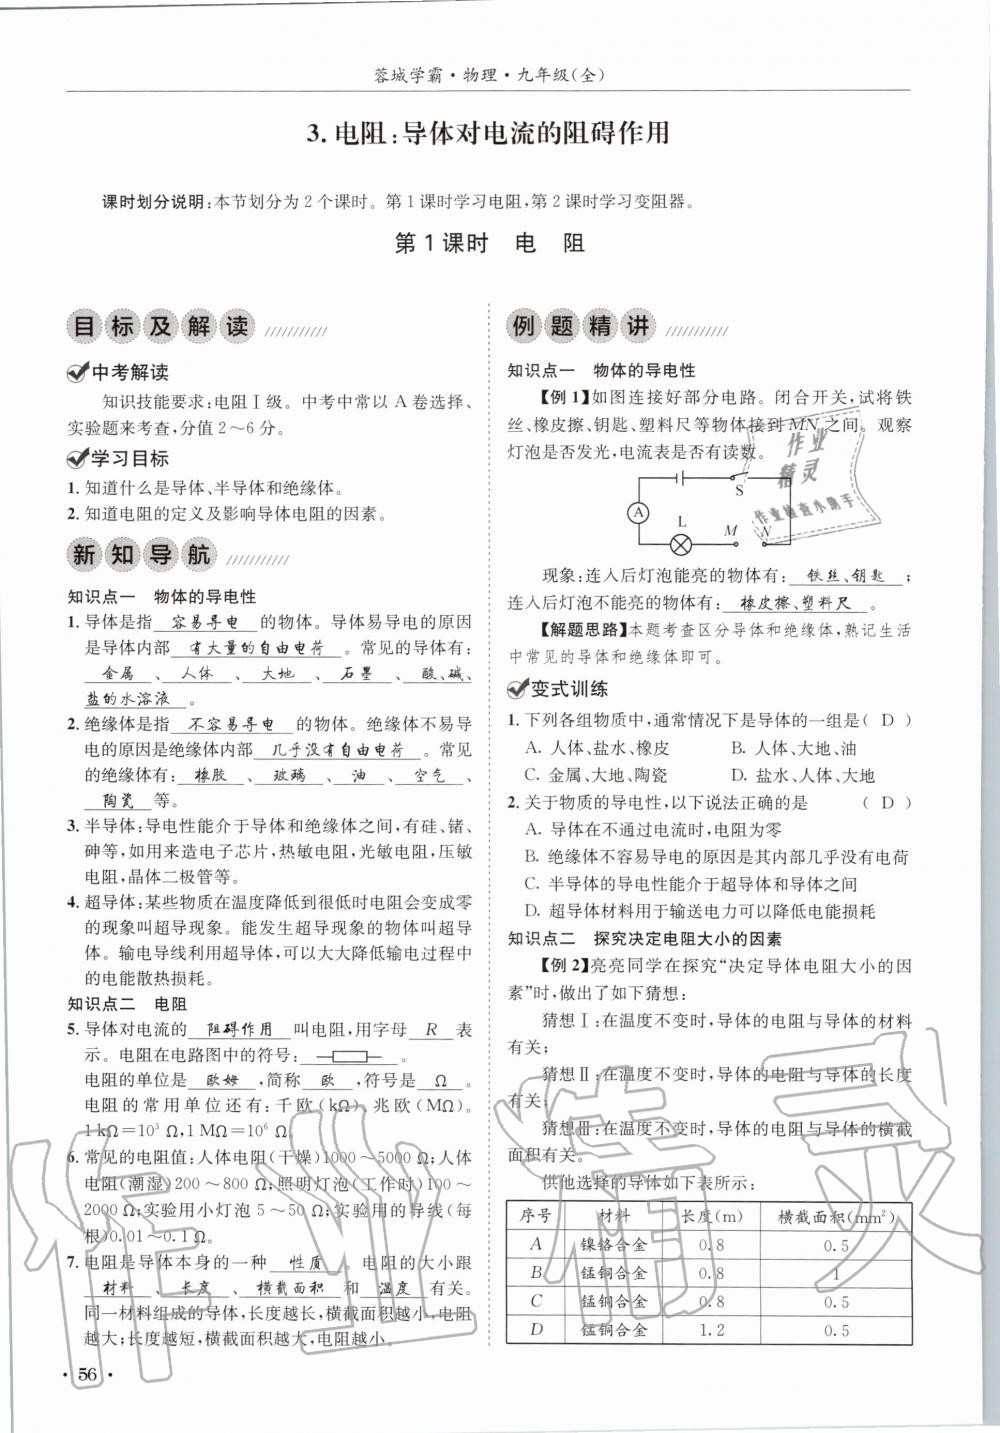 蓉城学霸·物理·九年级(全)
3. 电阻:导体对电流的阻碍作用
课时划分说明:本节划分为2个课时。第1课时学习电阻,第2课时学习变阻器。
第1课时 电 阻
目标及解读
中考解读
知识技能要求:电阻Ⅰ级。中考中常以A卷选择、
实验题来考查,分值2～6分。
学习目标
1. 知道什么是导体、半导体和绝缘体。
2. 知道电阻的定义及影响导体电阻的因素。
新知导航
知识点一 物体的导电性
1. 导体是指 容易导电 的物体。导体易导电的原因
是导体内部 有大量的自由电荷 。常见的导体有:
金属 、 人体 、 大地 、 石墨 、 酸、碱、
盐的水溶液 。
2. 绝缘体是指 不容易导电 的物体。绝缘体不易导
电的原因是绝缘体内部 几乎没有自由电荷 。常见
的绝缘体有: 橡胶 、 玻璃 、 油 、 空气 、
陶瓷 等。
3. 半导体:导电性能介于导体和绝缘体之间,有硅、锗、
砷等,如用来造电子芯片,热敏电阻,光敏电阻,压敏
电阻,晶体二极管等。
4. 超导体:某些物质在温度降低到很低时电阻会变成零
的现象叫超导现象。能发生超导现象的物体叫超导
体。输电导线利用超导体,可以大大降低输电过程中
的电能散热损耗。
知识点二 电阻
5. 导体对电流的 阻碍作用 叫电阻,用字母 R 表
示。电阻在电路图中的符号: 。
电阻的单位是 欧姆 ,简称 欧 ,符号是 Ω 。
电阻的常用单位还有:千欧(kΩ)、兆欧(MΩ)。
1 kΩ=10³ Ω,1 MΩ=10⁶ Ω。
6. 常见的电阻值:人体电阻(干燥)1000～5000 Ω;人体
电阻(潮湿)200～800 Ω;照明灯泡(工作时)100～
2000 Ω;实验用小灯泡5～50 Ω;实验用的导线(每
根)0.01～0.1 Ω。
7. 电阻是导体本身的一种 性质 。电阻的大小跟
材料 、 长度 、 横截面积 和 温度 有关。
同一材料组成的导体,长度越长,横截面积越小,电阻
越大;长度越短,横截面积越大,电阻越小。
·56·
例题精讲
知识点一 物体的导电性
【例1】如图连接好部分电路。闭合开关,试将铁
丝、橡皮擦、钥匙、塑料尺等物体接到MN之间。观察
灯泡是否发光,电流表是否有读数。
S
A
L
M N
现象:连入后灯泡能亮的物体有: 铁丝、钥匙 ;
连入后灯泡不能亮的物体有: 橡皮擦、塑料尺 。
【解题思路】本题考查区分导体和绝缘体,熟记生活
中常见的导体和绝缘体即可。
变式训练
1. 下列各组物质中,通常情况下是导体的一组是( D )
A. 人体、盐水、橡皮 B. 人体、大地、油
C. 金属、大地、陶瓷 D. 盐水、人体、大地
2. 关于物质的导电性,以下说法正确的是 ( D )
A. 导体在不通过电流时,电阻为零
B. 绝缘体不容易导电的原因是其内部几乎没有电荷
C. 半导体的导电性能介于超导体和导体之间
D. 超导体材料用于输送电力可以降低电能损耗
知识点二 探究决定电阻大小的因素
【例2】亮亮同学在探究“决定导体电阻大小的因
素”时,做出了如下猜想:
猜想Ⅰ:在温度不变时,导体的电阻与导体的材料
有关;
猜想Ⅱ:在温度不变时,导体的电阻与导体的长度
有关;
猜想Ⅲ:在温度不变时,导体的电阻与导体的横截
面积有关。
供他选择的导体如下表所示:
序号 材料 长度(m) 横截面积(mm²)
A 镍铬合金 0.8 0.5
B 锰铜合金 0.8 1
C 锰铜合金 0.8 0.5
D 锰铜合金 1.2 0.5
作业
精灵
作业检查小助手
作业精灵